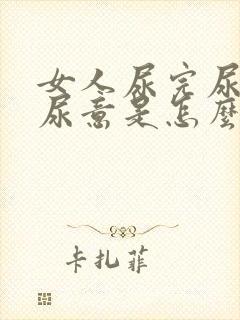 女人尿完尿
尿意是怎麼
卡扎菲